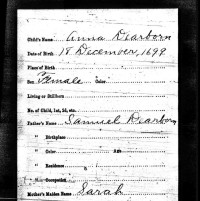 Child's Name Anna Dearborn
Date of Birth 18 December, 1699
Place of Birth
Sex Female Color
Living or Stillborn
No. of Child, 1st, 2d, etc.
Father's Name Samuel Dearborn
" Birthplace
" Color Age
" Residence
" Occupation
Mother's Maiden Name Sarah